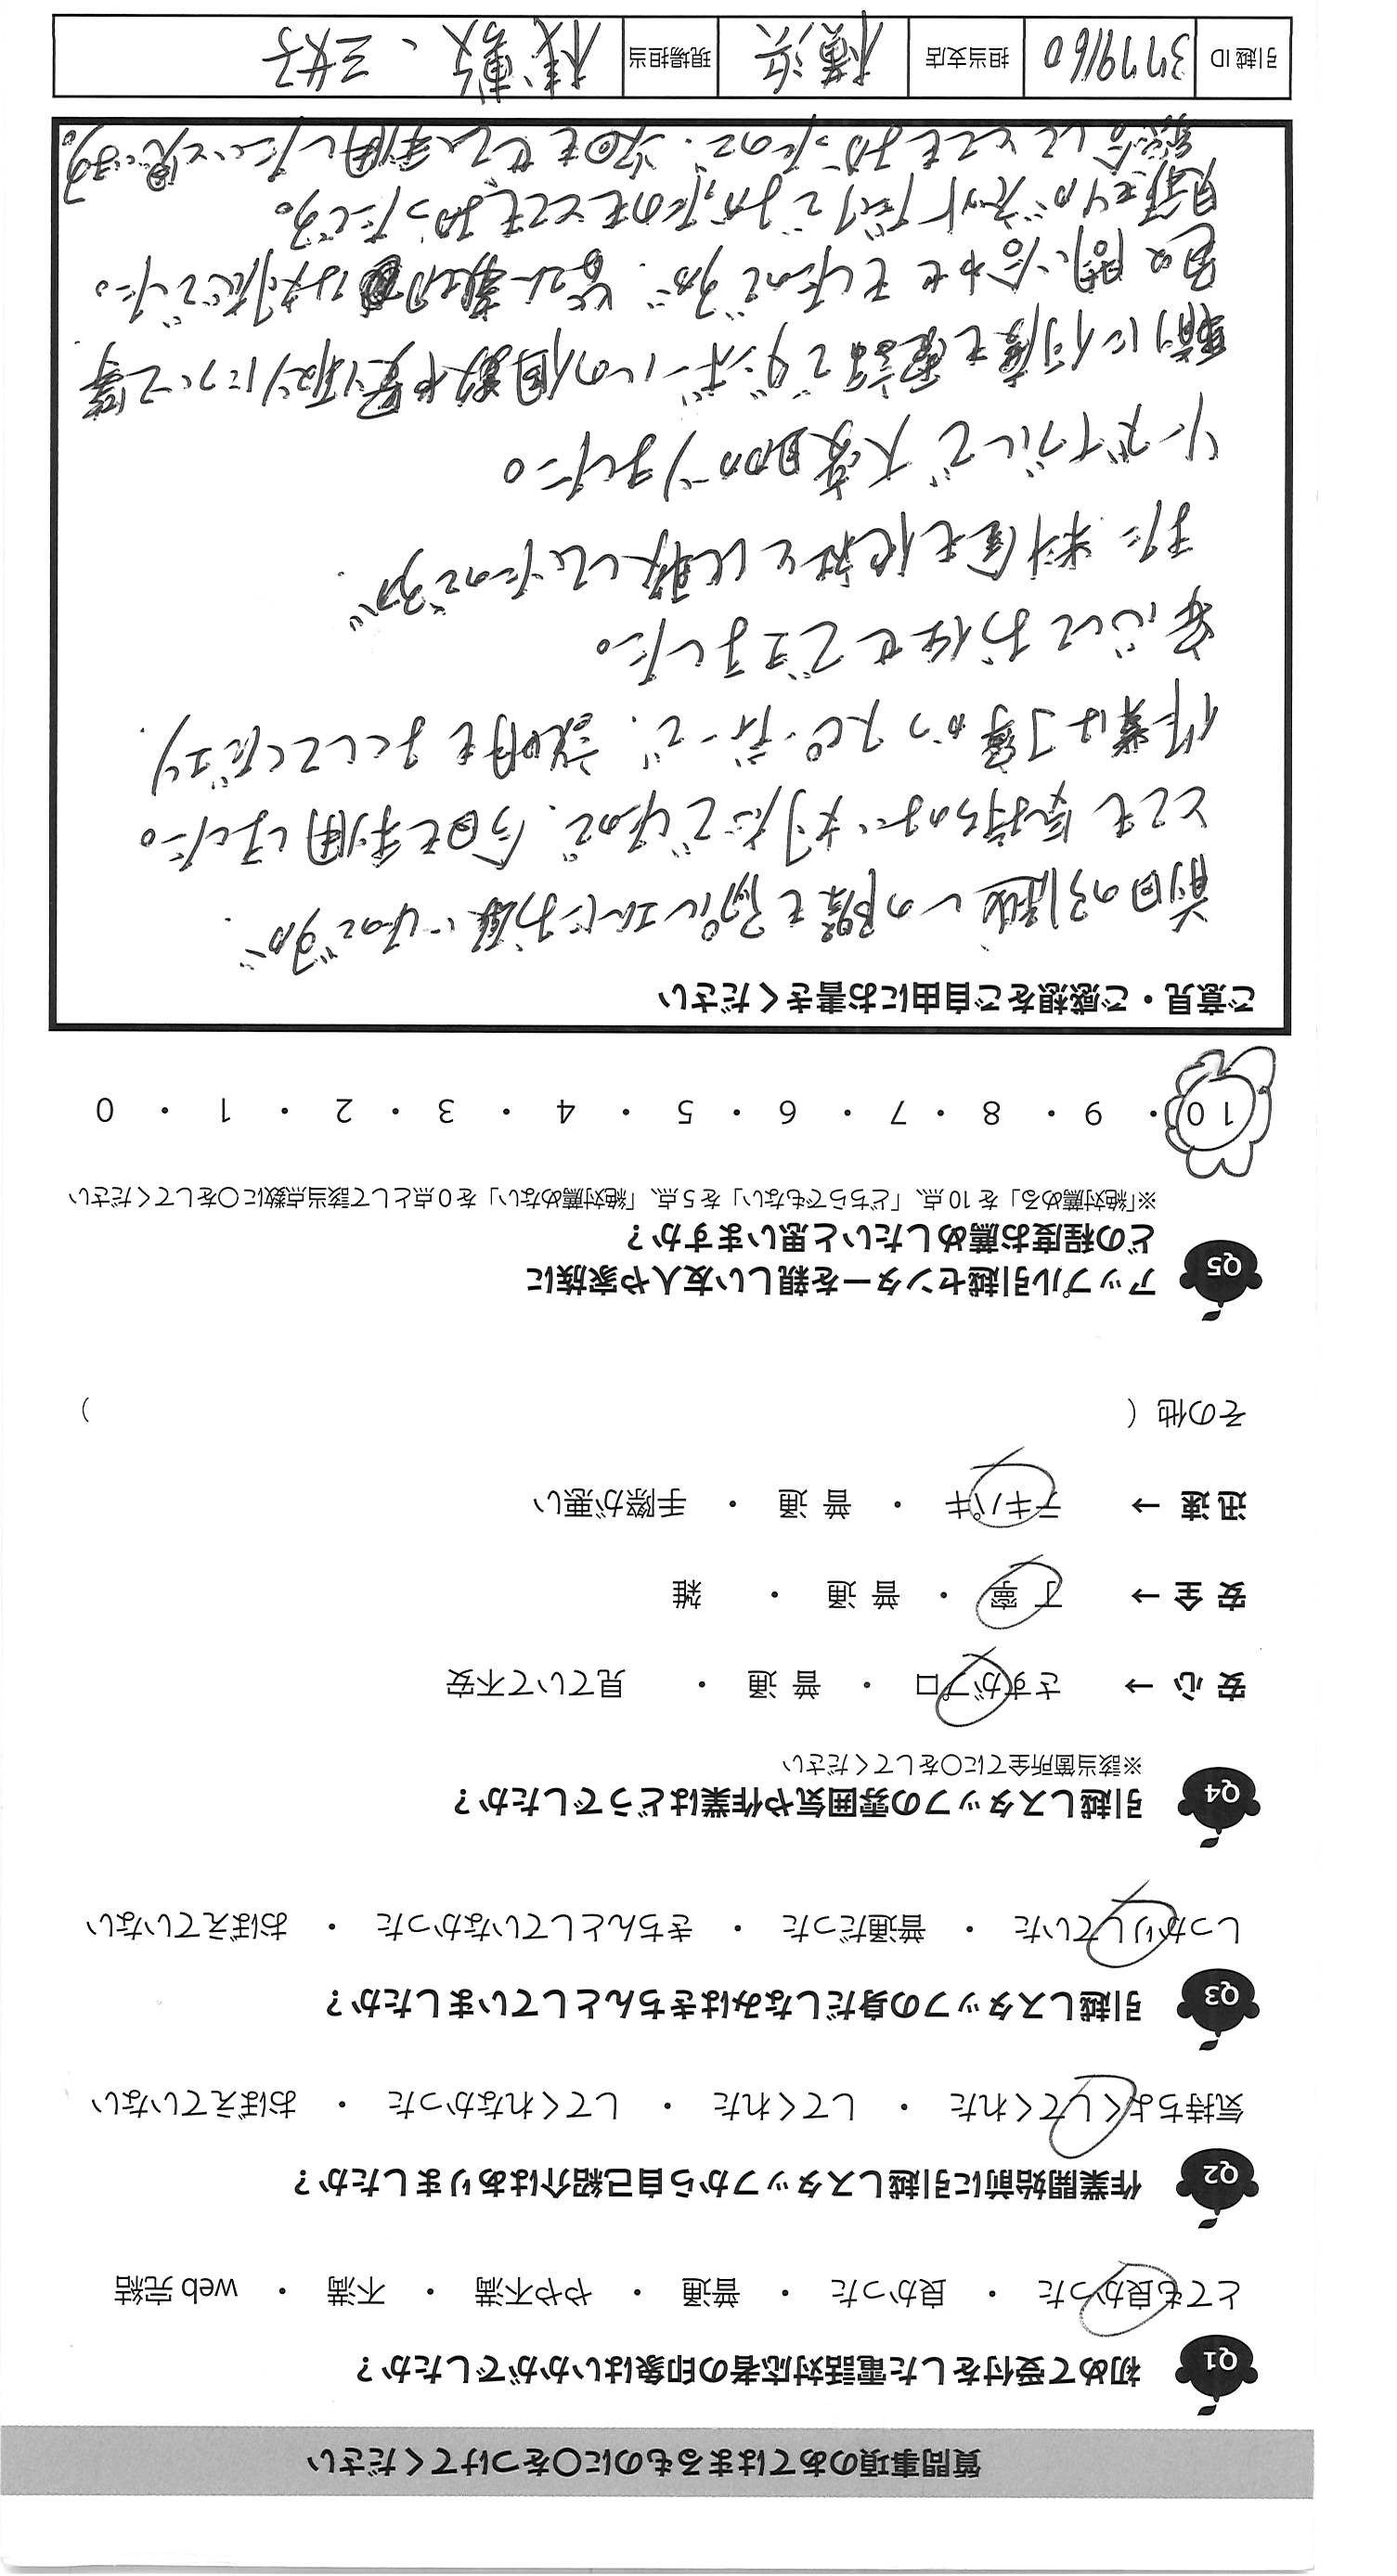 質問事項のあてはまるものに○をつけてください
Q1 初めて受付をした電話対応者の印象はいかがでしたか？
とても良かった ・ 良かった ・ 普通 ・ やや不満 ・ 不満 ・ web完結
Q2 作業開始前に引越しスタッフから自己紹介はありましたか？
気持ちよくしてくれた ・ してくれた ・ してくれなかった ・ おぼえていない
Q3 引越しスタッフの身だしなみはきちんとしていましたか？
しっかりしていた ・ 普通だった ・ きちんとしていなかった ・ おぼえていない
Q4 引越しスタッフの雰囲気や作業はどうでしたか？
※該当箇所全てに○をしてください
安心 → さすがプロ ・ 普通 ・ 見ていて不安
安全 → 丁寧 ・ 普通 ・ 雑
迅速 → テキパキ ・ 普通 ・ 手際が悪い
その他（ ）
Q5 アップル引越センターを親しい友人や家族に
どの程度お薦めしたいと思いますか？
※「絶対薦める」を10点、「どちらでもない」を5点、「絶対薦めない」を0点として該当点数に○をしてください
10 ・ 9 ・ 8 ・ 7 ・ 6 ・ 5 ・ 4 ・ 3 ・ 2 ・ 1 ・ 0
ご意見・ご感想をご自由にお書きください
前回の引越しの際もアップルさんにお願いしたのですが、
とても気持ちのよい対応でしたので、今回も利用しました。
作業は丁寧かつスピーディーで、説明もよくしてくださり、
安心してお任せできました。
また、料金も他社と比較していたのですが、
リーズナブルで大変助かりました。
事前に何度も電話でダンボールの個数や買い取りについて等
色々問い合わせをしたのですが、皆さん親切な対応でした。
見積もりがネットだけでよかったのもとても助かったです。
総合してとてもよかったので、次回もぜひ利用したいと思います。
引越ID 3779160 担当支店 横浜 現場担当 後藤、三好